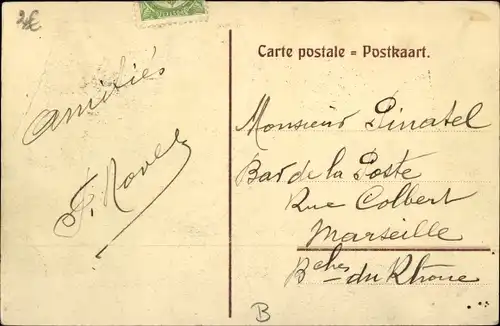 2€
Amitiés
Carte postale = Postkaart.
Monsieur Pinatel
Bar de la Poste
Rue Colbert
Marseille
Bches du Rhône
B